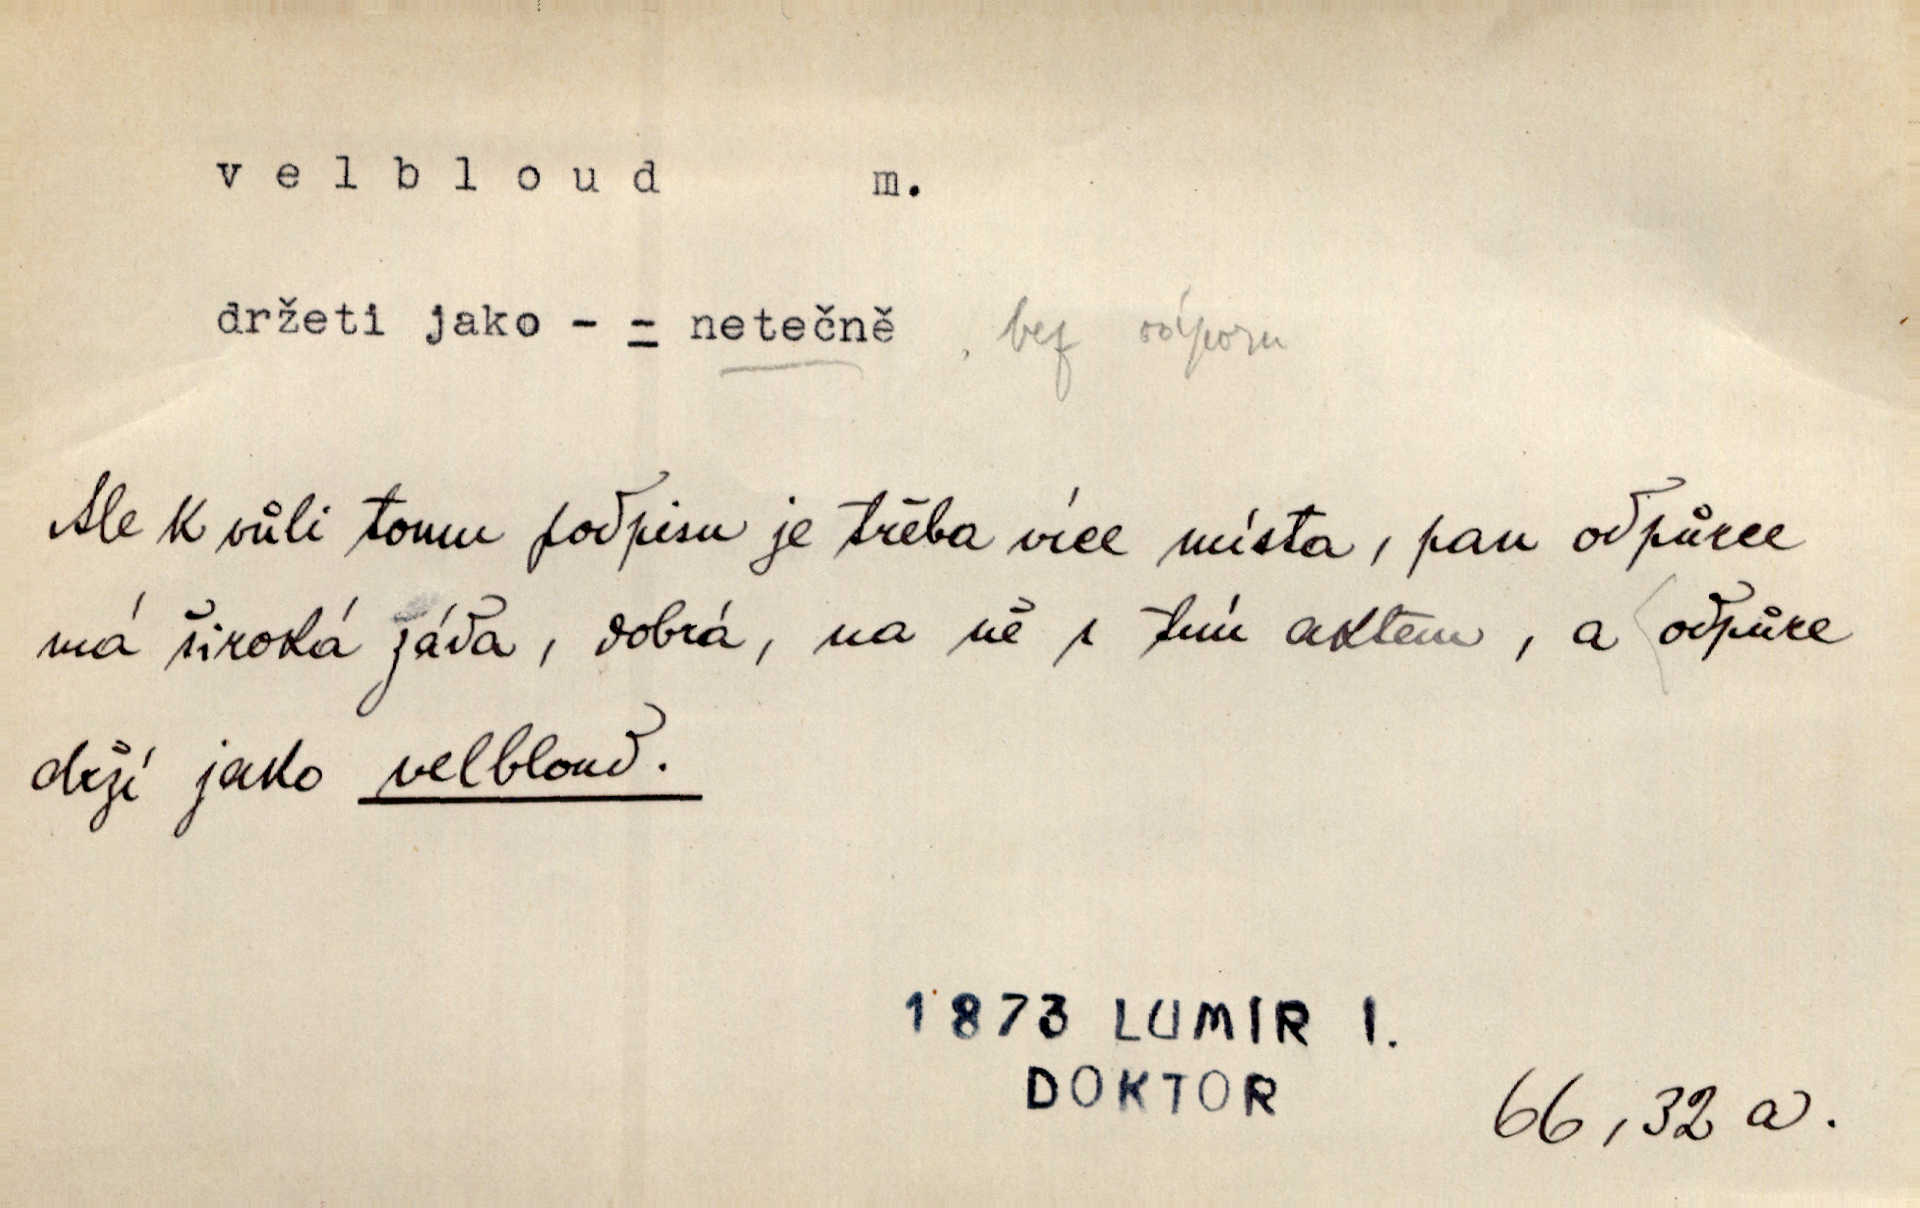 velbloud m.
držeti jako - = netečně, bez odporu
Ale k vůli tomu podpisu je třeba více místa, pan odpůrce
má široká záda, dobrá, na ně s tím aktem, a odpůrce
drží jako velbloud.
1873 LUMÍR I.
DOKTOR
66,32 a.